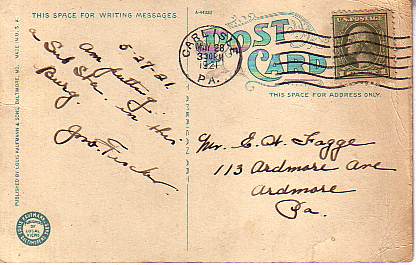 THIS SPACE FOR WRITING MESSAGES.
A-44238
5-27-21.
Am putting
a Sub Sta. in this
Burg.
Geo. Fischer
PUBLISHED BY LOUIS KAUFMANN & SONS, BALTIMORE, MD. MADE IN U. S. A.
LOUIS KAUFMANN & SONS
BALTIMORE, MD.
LOCAL
VIEWS
POST
CARD
CARLISLE
MAY 28
330PM
1921
PA.
U.S. POSTAGE
THIS SPACE FOR ADDRESS ONLY.
Mr. E. H. Fagge
113 Ardmore Ave
Ardmore
Pa.